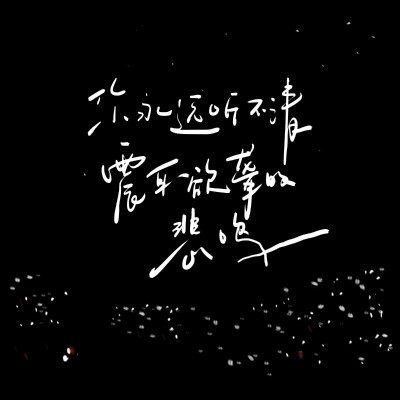 你永远听不清
震耳欲聋的
悲鸣